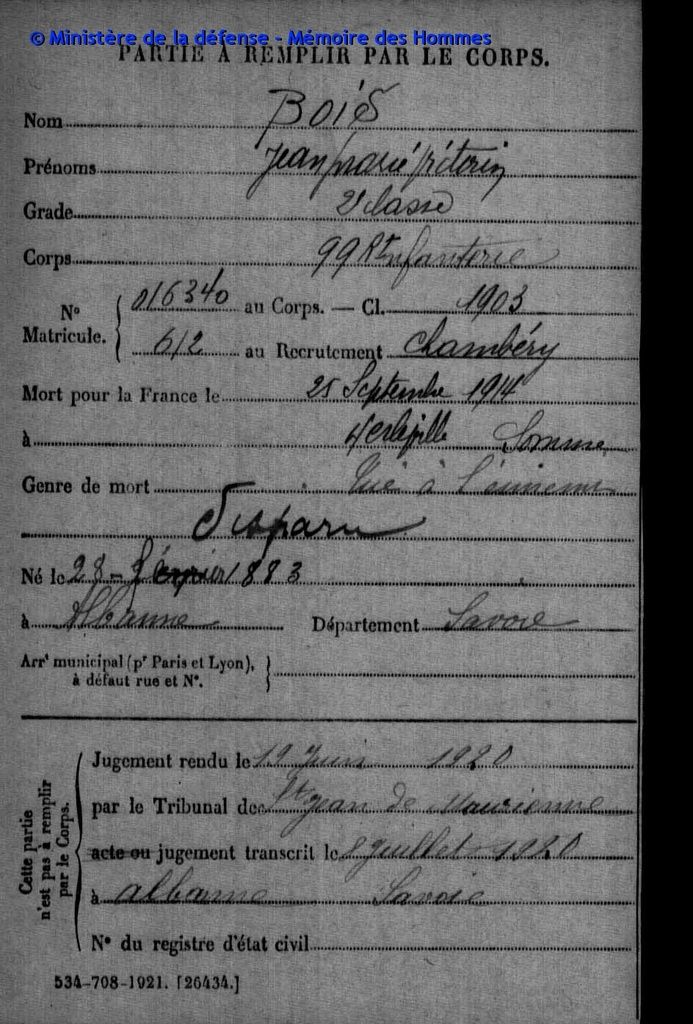 © Ministère de la défense - Mémoire des Hommes
PARTIE A REMPLIR PAR LE CORPS.
Nom BOIS
Prénoms Jean marie
Grade 2e classe
Corps 99 Rt Infanterie
N° Matricule. 016340 au Corps. — Cl. 1903
612 au Recrutement Chambéry
Mort pour la France le 25 Septembre 1914
à Somme
Genre de mort Tué à l'ennemi
disparu
Né le 28 - février 1883
à Albanne Département Savoie
Arrt municipal (pr Paris et Lyon),
à défaut rue et N°.
Cette partie
n'est pas à remplir
par le Corps.
Jugement rendu le 19 Juin 1920
par le Tribunal de St Jean de Maurienne
acte ou jugement transcrit le 8 Juillet 1920
à albanne Savoie
N° du registre d'état civil
534-708-1921. [26434.]